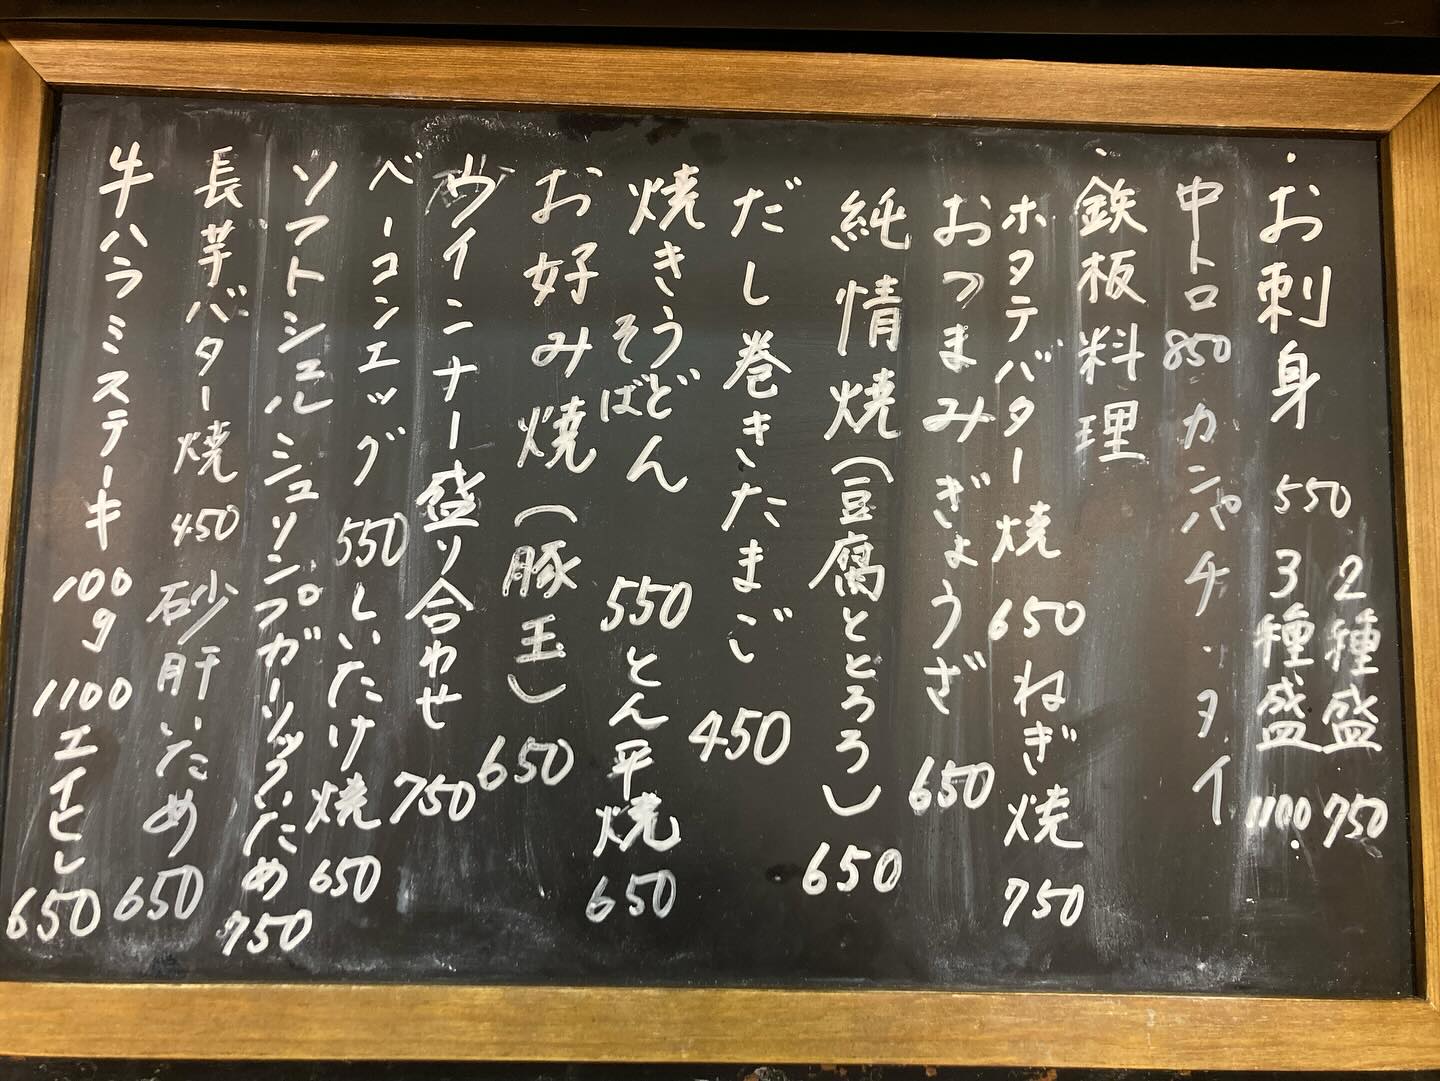 ・お刺身 550 2種盛 750
3種盛 1100・
中トロ850・カンパチ・タイ
・鉄板料理
ホタテバター焼 650 ねぎ焼 750
おつまみぎょうざ 650
純情焼(豆腐ととろろ) 650
だし巻きたまご 450
焼きうどん 550 とん平焼 650
そば
お好み焼(豚玉) 650
ウインナー盛り合わせ 750
ベーコンエッグ 550 しいたけ焼 650
ソフトシェルシュリンプガーリックいため 750
長芋バター焼 450 砂肝いため 650
牛ハラミステーキ 100g 1100 エイヒレ 650